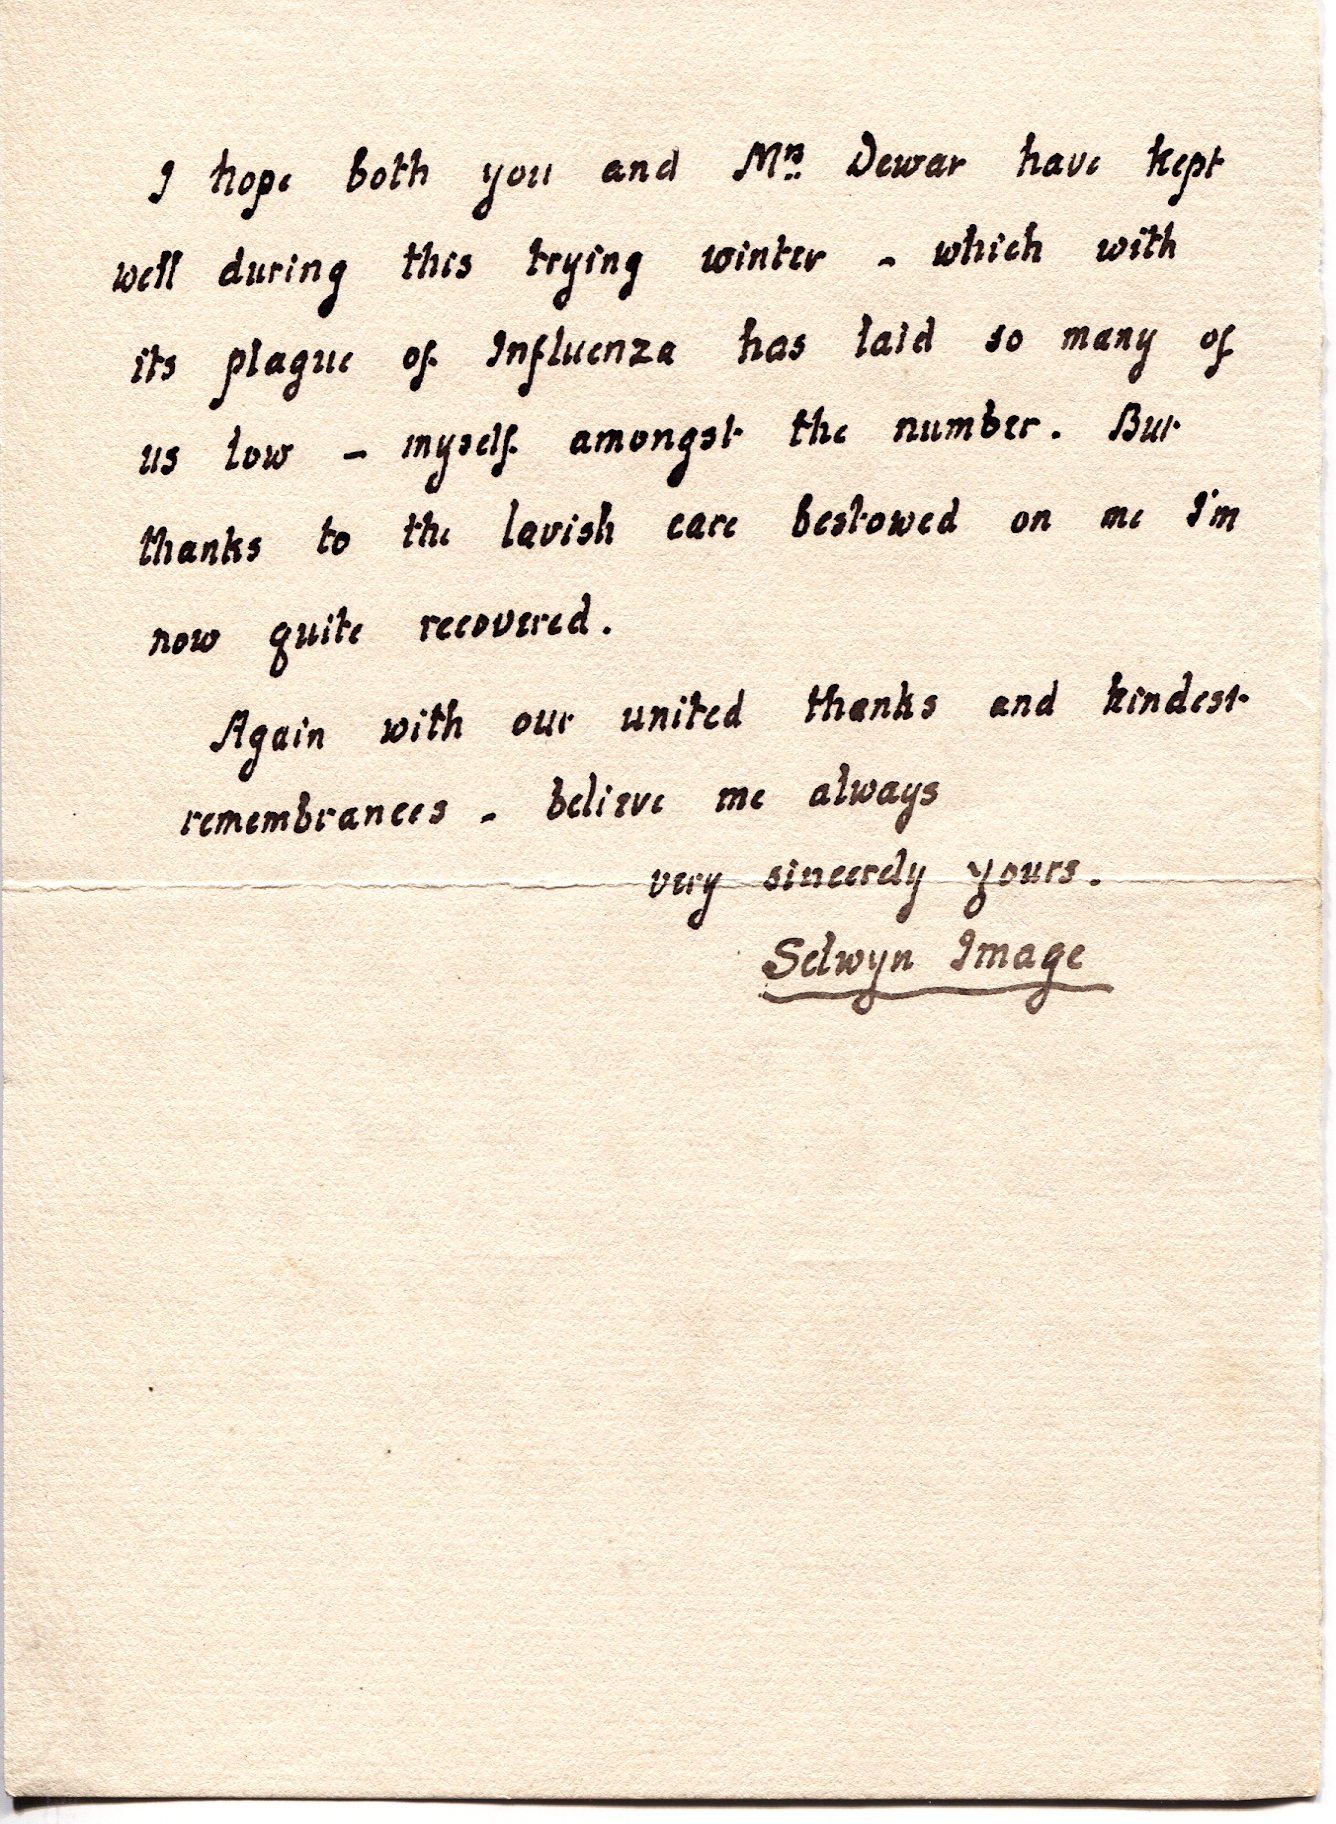 I hope both you and Mrs Dewar have kept
well during this trying winter - which with
its plague of Influenza has laid so many of
us low - myself amongst the number. But
thanks to the lavish care bestowed on me I'm
now quite recovered.
Again with our united thanks and kindest
remembrances - believe me always
very sincerely yours.
Selwyn Image